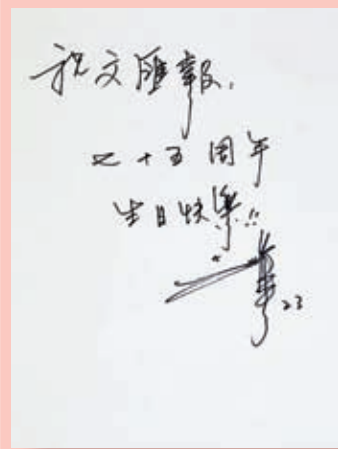 祝文匯報,
七十五周年
生日快樂!!
23